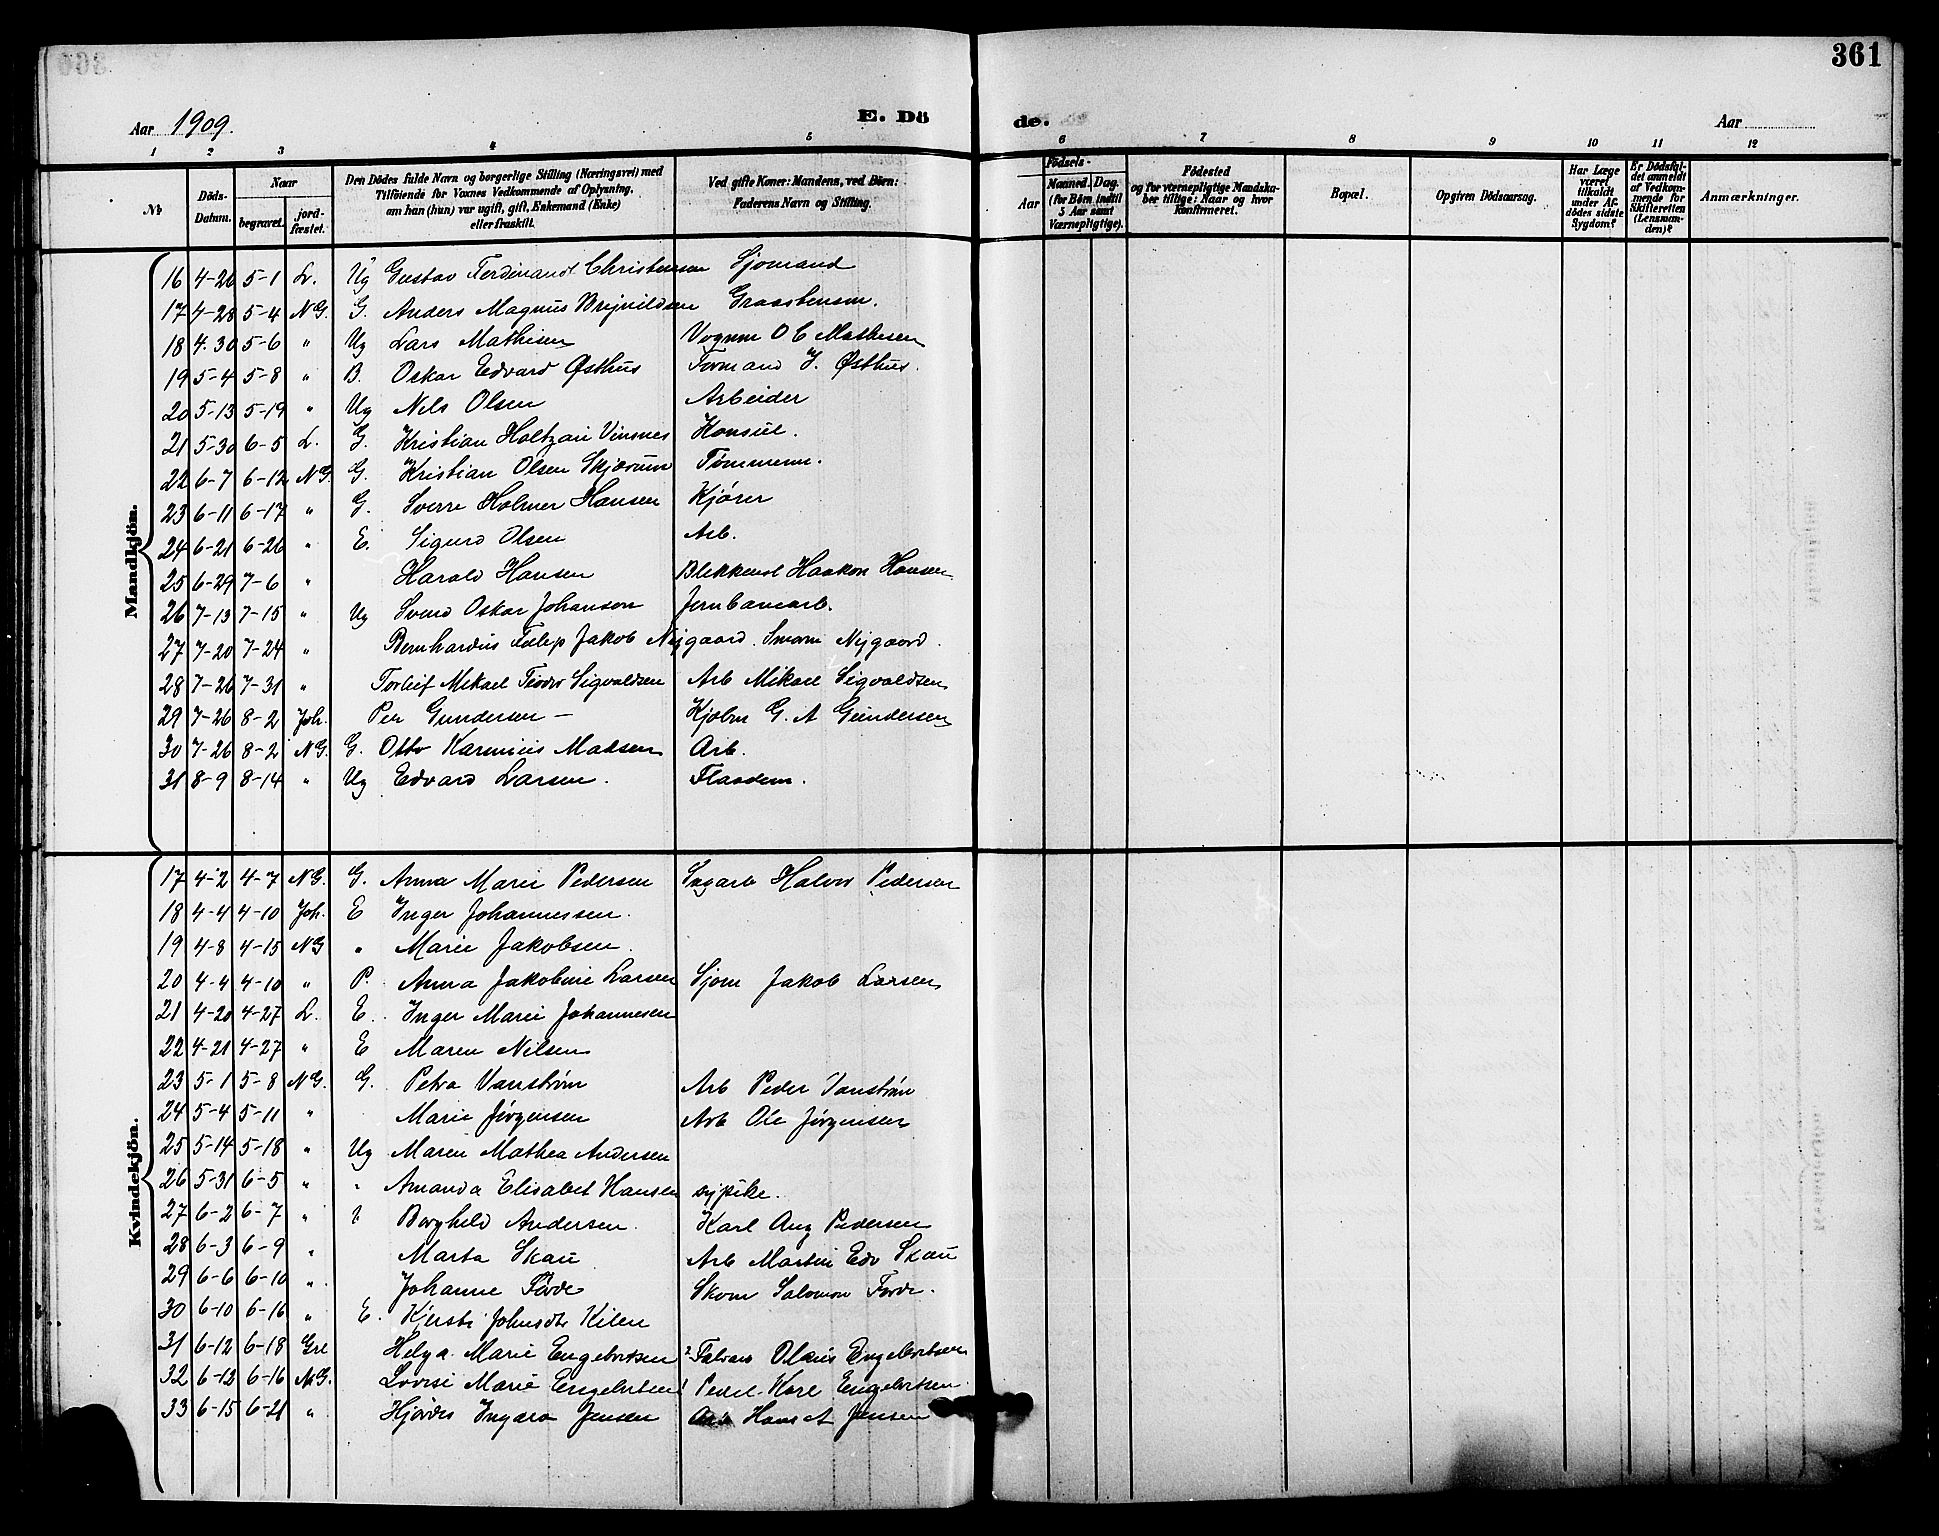 361
Aar 1909.
E. Dö
de.
Aar
1 2 3 4 5 6 7 8 9 10 11 12
No
Döds-Datum.
Naar
begravet.
jord-fæstet.
Den Dödes fulde Navn og borgerlige Stilling (Næringsvei) med
Tilföiende for Voxnes Vedkommende af Oplysning,
om han (hun) var ugift, gift, Enkemand (Enke)
eller fraskilt.
Ved gifte Koner: Mandens, ved Börn:
Faderens Navn og Stilling.
Födsels-
Aar
Maaned. Dag.
(for Börn indtil
5 Aar samt
Værnepligtige).
Födested
og for værnepligtige Mandska-
ber tillige: Naar og hvor
konfirmeret.
Bopæl.
Opgiven Dödsaarsag.
Har Læge
været
tilkaldt
under Af-
dödes sidste
Sygdom?
Er Dödsfal-
det anmeldt
af Vedkom-
mende for
Skifteretten
(Lensman-
den)?
Anmærkninger.
Mandkjön.
16 4-26 5-1 L. Ug Gustav Ferdinandt Christensen Sjömand
17 4-28 5-4 NG. G. Anders Magnus Brynildsen Graastensm.
18 4-30 5-6 " Ug Lars Mathisen Vognm O C Mathisen
19 5-4 5-8 " B. Oskar Edvard Østhus Formand J. Østhus.
20 5-13 5-19 " Ug Nils Olsen Arbeider
21 5-30 6-5 L. G. Kristian Holtzau Vinsnes Konsul.
22 6-7 6-12 NG. G. Kristian Olsen Skjærum Tömmerm.
23 6-11 6-17 " G. Sverre Holmer Hansen Kjörer
24 6-21 6-26 " E. Sigurd Olsen Arb.
25 6-29 7-6 " Harald Hansen Blikkensl Haakon Hansen
26 7-13 7-15 " Ug Svend Oskar Johanson Jernbanearb.
27 7-20 7-24 " Bernhardus Jakob Nygaard. Nygaard.
28 7-26 7-31 " Torleif Mikael Teodor Sigvaldsen Arb Mikael Sigvaldsen
29 7-26 8-2 Joh. Per Gundersen – Kjöbm G. A Gundersen
30 7-26 8-2 NG. G. Otto Karinius Madsen Arb.
31 8-9 8-14 " Ug Edvard Larsen.
Kvindekjön.
17 4-2 4-7 NG. G. Anna Marie Pedersen Sagarb Halvor Pedersen
18 4-4 4-10 Joh. E Inger Johannessen.
19 4-8 4-15 NG " Marie Jakobsen.
20 4-4 4-10 " P. Anna Jakobine Larsen Sjöm Jakob Larsen
21 4-20 4-27 L. E. Inger Marie Johannesen
22 4-21 4-27 " E Maren Nilsen
23 5-1 5-8 NG. G. Petra Vanström Arb Peder Vanström
24 5-4 5-11 " Marie Jörgensen Arb Ole Jörgensen
25 5-14 5-18 " Ug Maren Mathea Andersen
26 5-31 6-5 " " Amanda Elisabet Hansen sypike.
27 6-2 6-7 " Borghild Andersen. Karl Aug Pedersen
28 6-3 6-9 " Marta Skau Arb Martin Edv Skau
29 6-6 6-10 " Johanne Förde Skom Salomon Förde.
30 6-10 6-16 " E. Kjersti Johnsdtr Kilen
31 6-12 6-18 Gre Helga Marie Engebretsen Olaus Engebretsen
32 6-12 6-16 NG. Lovise Marie Engebretsen Karl Engebretsen
33 6-15 6-21 " Hjördis Ingara Jensen Arb Hans A Jensen